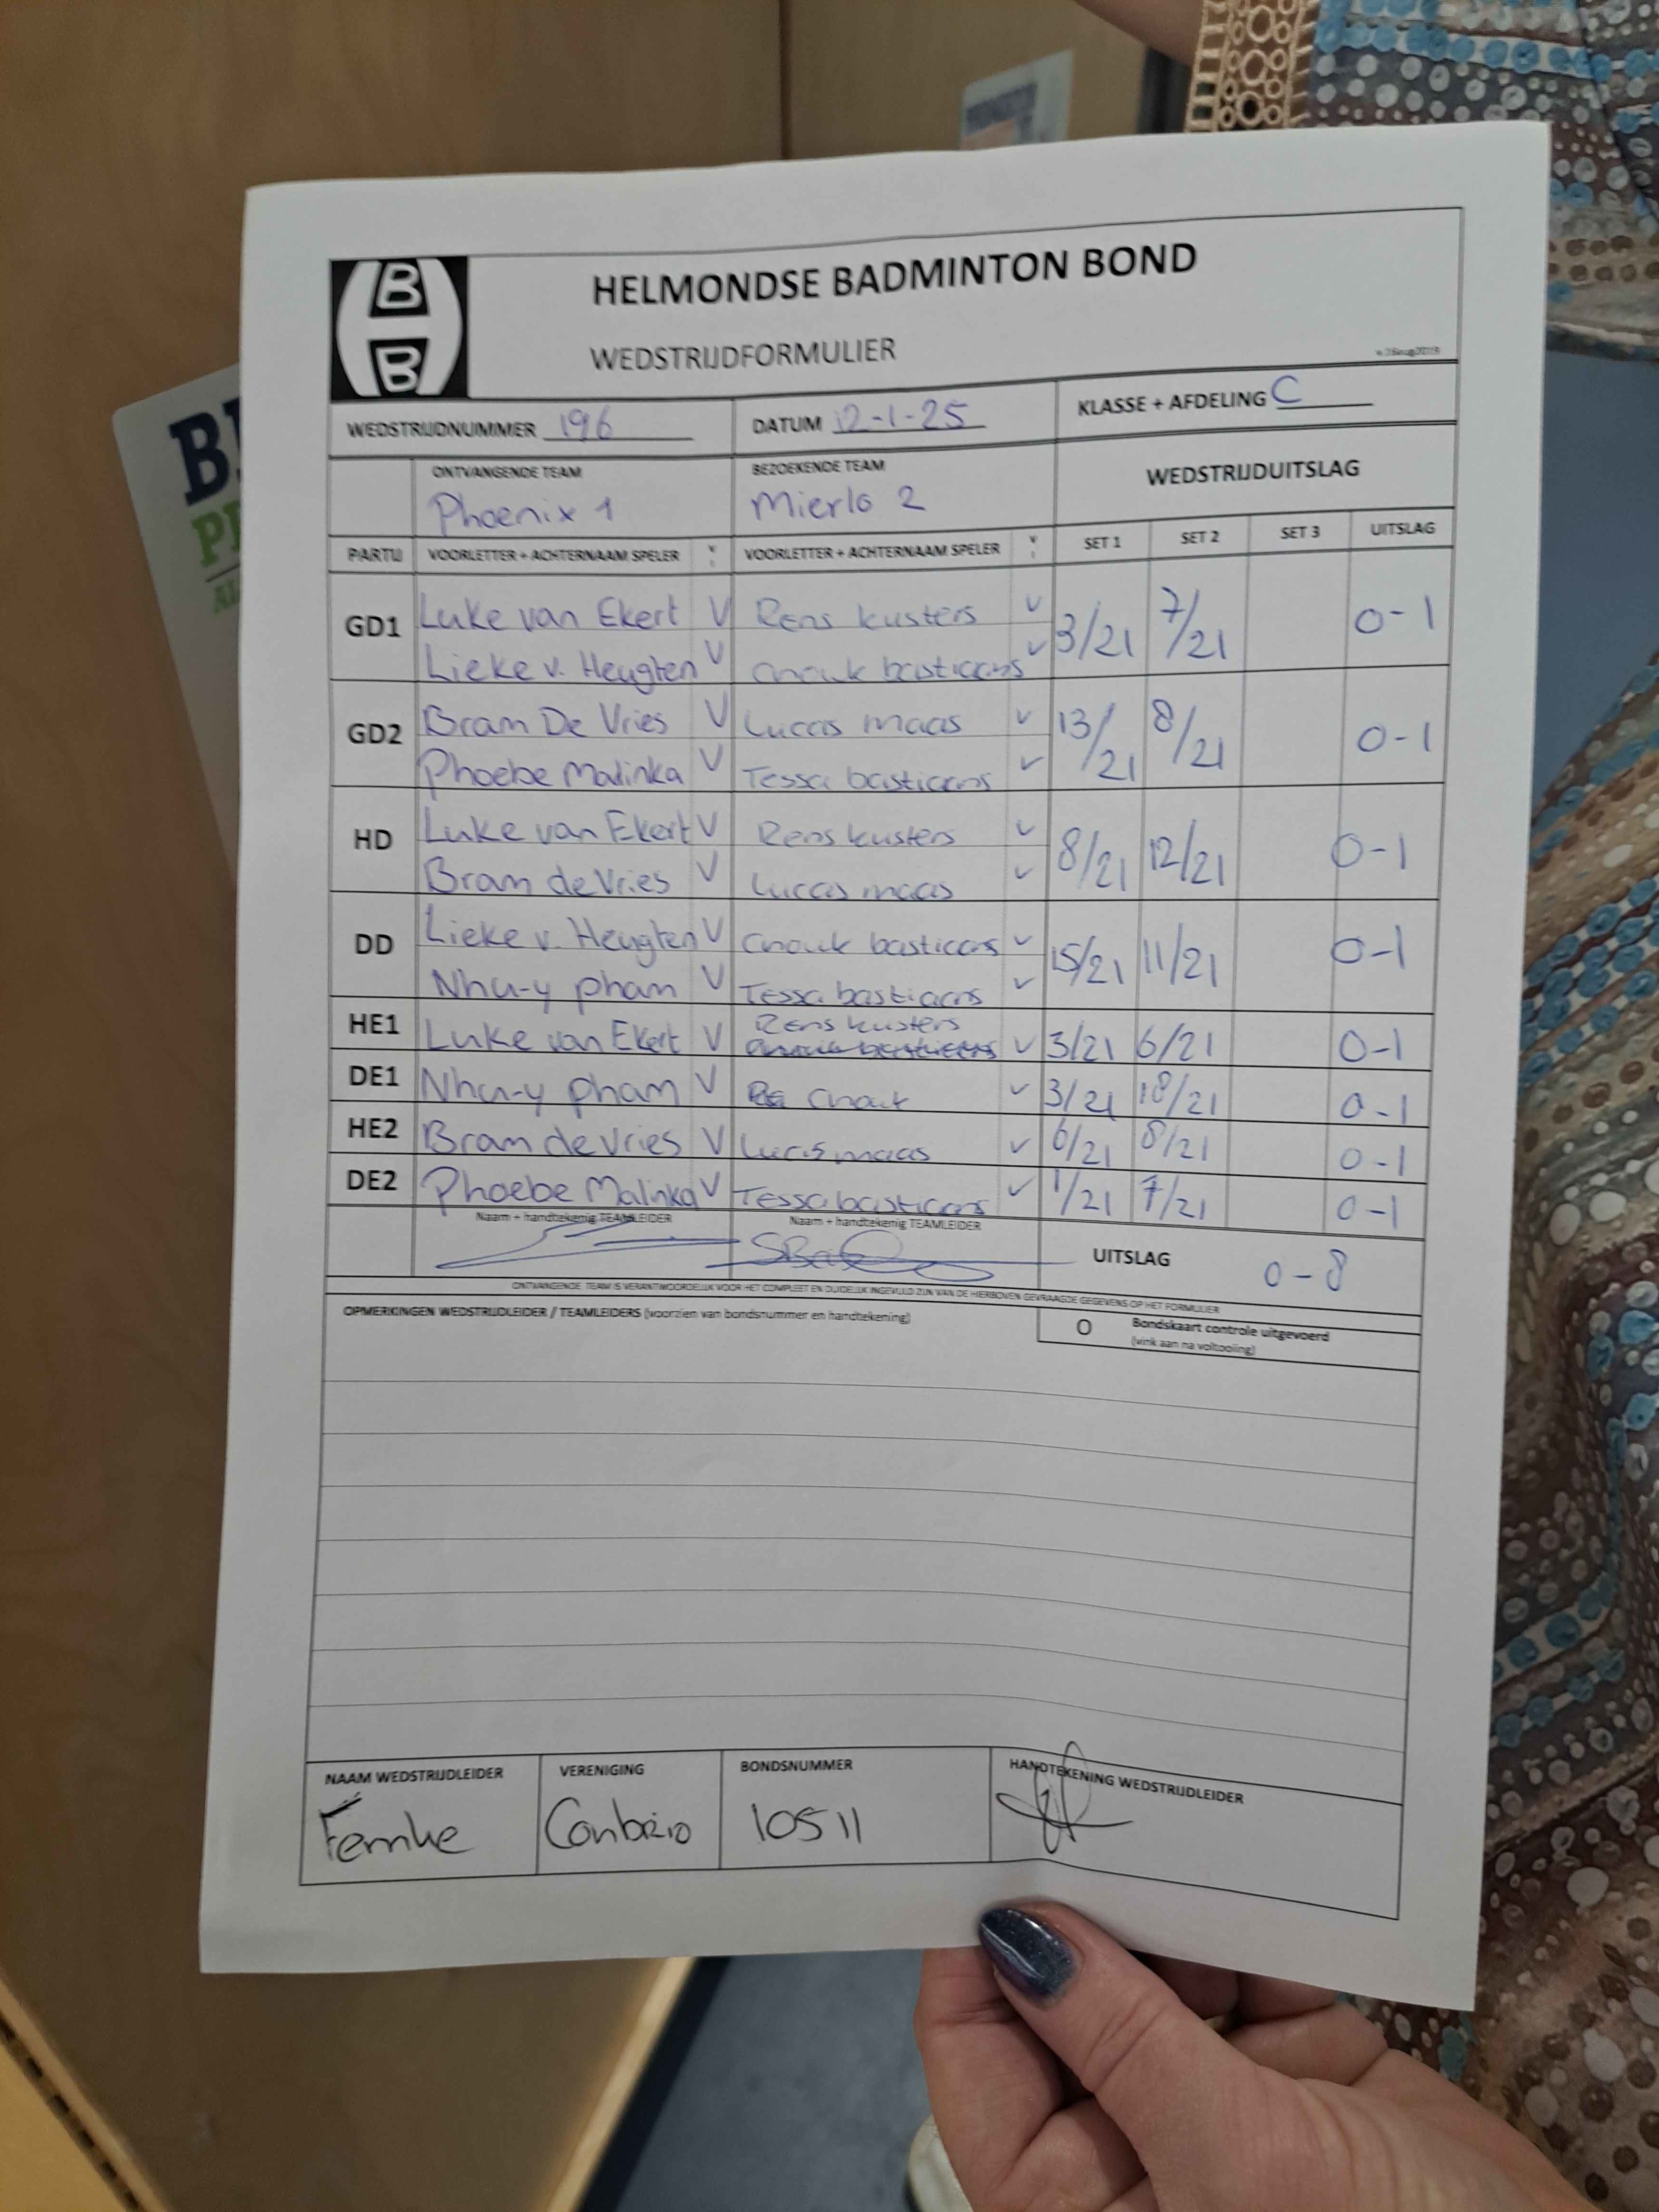 B
B
HELMONDSE BADMINTON BOND
WEDSTRIJDFORMULIER
v.26aug2019
WEDSTRIJDNUMMER 196 DATUM 12-1-25 KLASSE + AFDELING C
ONTVANGENDE TEAM BEZOEKENDE TEAM WEDSTRIJDUITSLAG
Phoenix 1 Mierlo 2
PARTIJ VOORLETTER + ACHTERNAAM SPELER V VOORLETTER + ACHTERNAAM SPELER V SET 1 SET 2 SET 3 UITSLAG
GD1 Luke van Ekert V Rens kusters V 3/21 7/21 0-1
Lieke v. Heugten V anouk bastiaans V
GD2 Bram De Vries V Lucas maas V 13/21 8/21 0-1
Phoebe Malinka V Tessa bastiaans V
HD Luke van Ekert V Rens kusters V 8/21 12/21 0-1
Bram de Vries V Lucas maas V
DD Lieke v. Heugten V anouk bastiaans V 15/21 11/21 0-1
Nhu-y pham V Tessa bastiaans V
HE1 Luke van Ekert V Rens kusters V 3/21 6/21 0-1
DE1 Nhu-y pham V anouk V 3/21 10/21 0-1
HE2 Bram de Vries V Lucas maas V 6/21 8/21 0-1
DE2 Phoebe Malinka V Tessa bastiaans V 1/21 7/21 0-1
Naam + handtekenig TEAMLEIDER Naam + handtekenig TEAMLEIDER
UITSLAG 0-8
ONTVANGENDE TEAM IS VERANTWOORDELIJK VOOR HET COMPLEET EN DUIDELIJK INGEVULD ZIJN VAN DE HIERBOVEN GEVRAAGDE GEGEVENS OP HET FORMULIER
OPMERKINGEN WEDSTRIJDLEIDER / TEAMLEIDERS (voorzien van bondsnummer en handtekening)
O Bondskaart controle uitgevoerd
(vink aan na voltooiing)
NAAM WEDSTRIJDLEIDER VERENIGING BONDSNUMMER HANDTEKENING WEDSTRIJDLEIDER
Femke Conbrio 10511